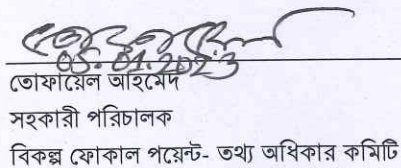 05.01.2023
তোফায়েল আহমেদ
সহকারী পরিচালক
বিকল্প ফোকাল পয়েন্ট- তথ্য অধিকার কমিটি